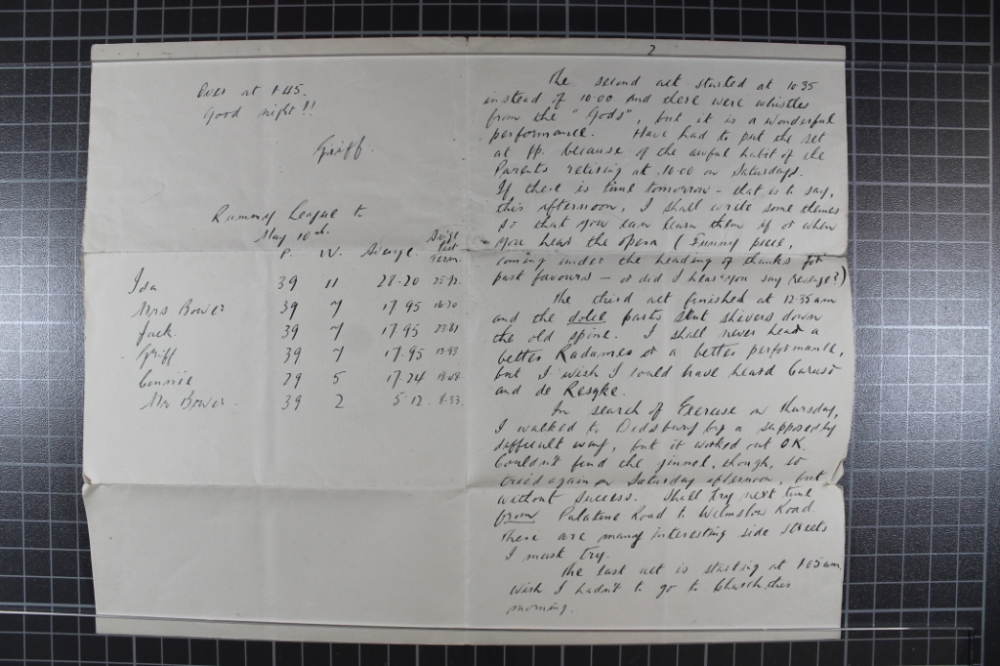 Over at 1.45.
Good night!!
Griff.
Rummy League to
May 10th.
P. W. Average. Avige. Last Term.
Ida 39 11 28.20
Mrs Bower 39 7 17.95
Jack. 39 7 17.95
Griff 39 7 17.95
Connie 29 5 17.24
Mr Bower. 39 2 5.12. 8.33.
2
The second act started at 10.35
instead of 10.00 and there were whistles
from the "Gods", but it is a wonderful
performance. Have had to put the set
at pp. because of the awful habit of the
Parents retiring at 10.00 on Saturdays.
If there is time tomorrow - that is to say,
this afternoon, I shall write some themes
so that you can learn them if or when
you hear the opera (Funny piece,
coming under the heading of thanks for
past favours - or did I hear you say revenge?)
The third act finished at 12.35 am
and the parts sent shivers down
the old spine. I shall never hear a
better Radames or a better performance,
but I wish I could have heard Caruso
and de Reszke.
In search of Exercise on Thursday,
I walked to Didsbury by a supposedly
difficult way, but it worked out OK.
Couldn't find the ginnel, though, so
tried again on Saturday afternoon, but
without success. Shall try next time
from Palatine Road to Wilmslow Road.
There are many interesting side streets
I must try.
The last act is starting at 1.05 am.
Wish I hadn't to go to Church this
morning.